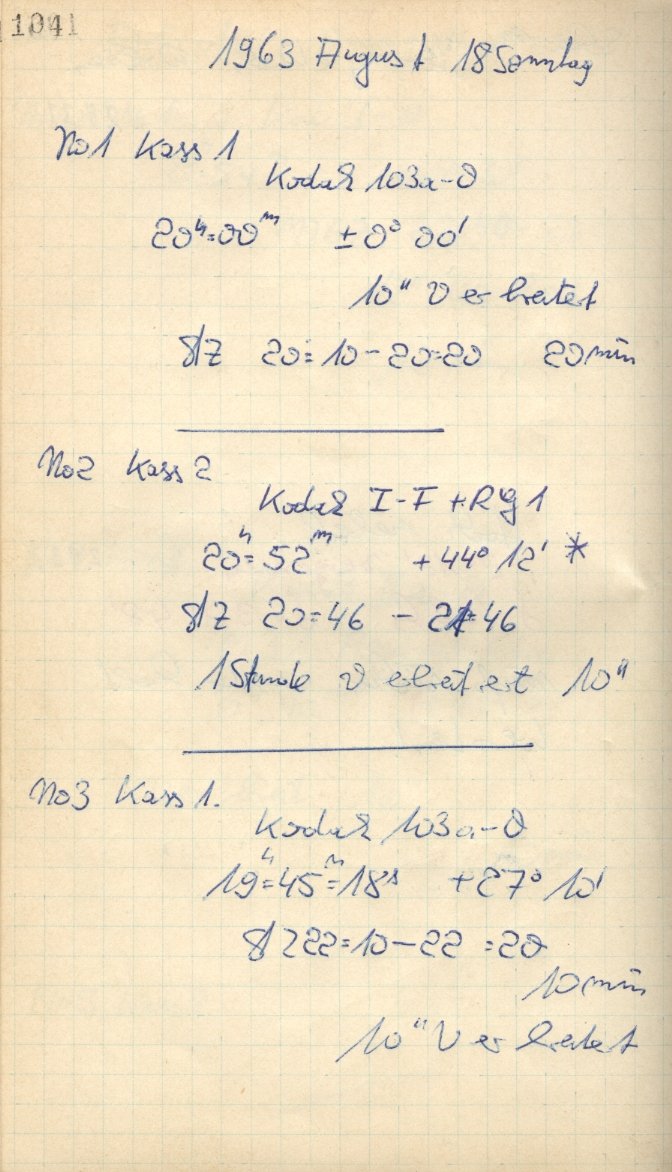 1041
1963 August 18 Sonntag
No1 Kass 1
Kodak 103a-O
20h=00m ±0° 00'
10" Verbreitet
20=10-20=20 20 min
No2 Kass 2
Kodak I-F + RG1
20h=52m +44° 12' *
20=46 - 21=46
1 Stunde Verbreitert 10"
No3 Kass 1.
Kodak 103a-O
19h=45m=18s +27° 10'
22=10-22=20
10 min
10" Verbreitet